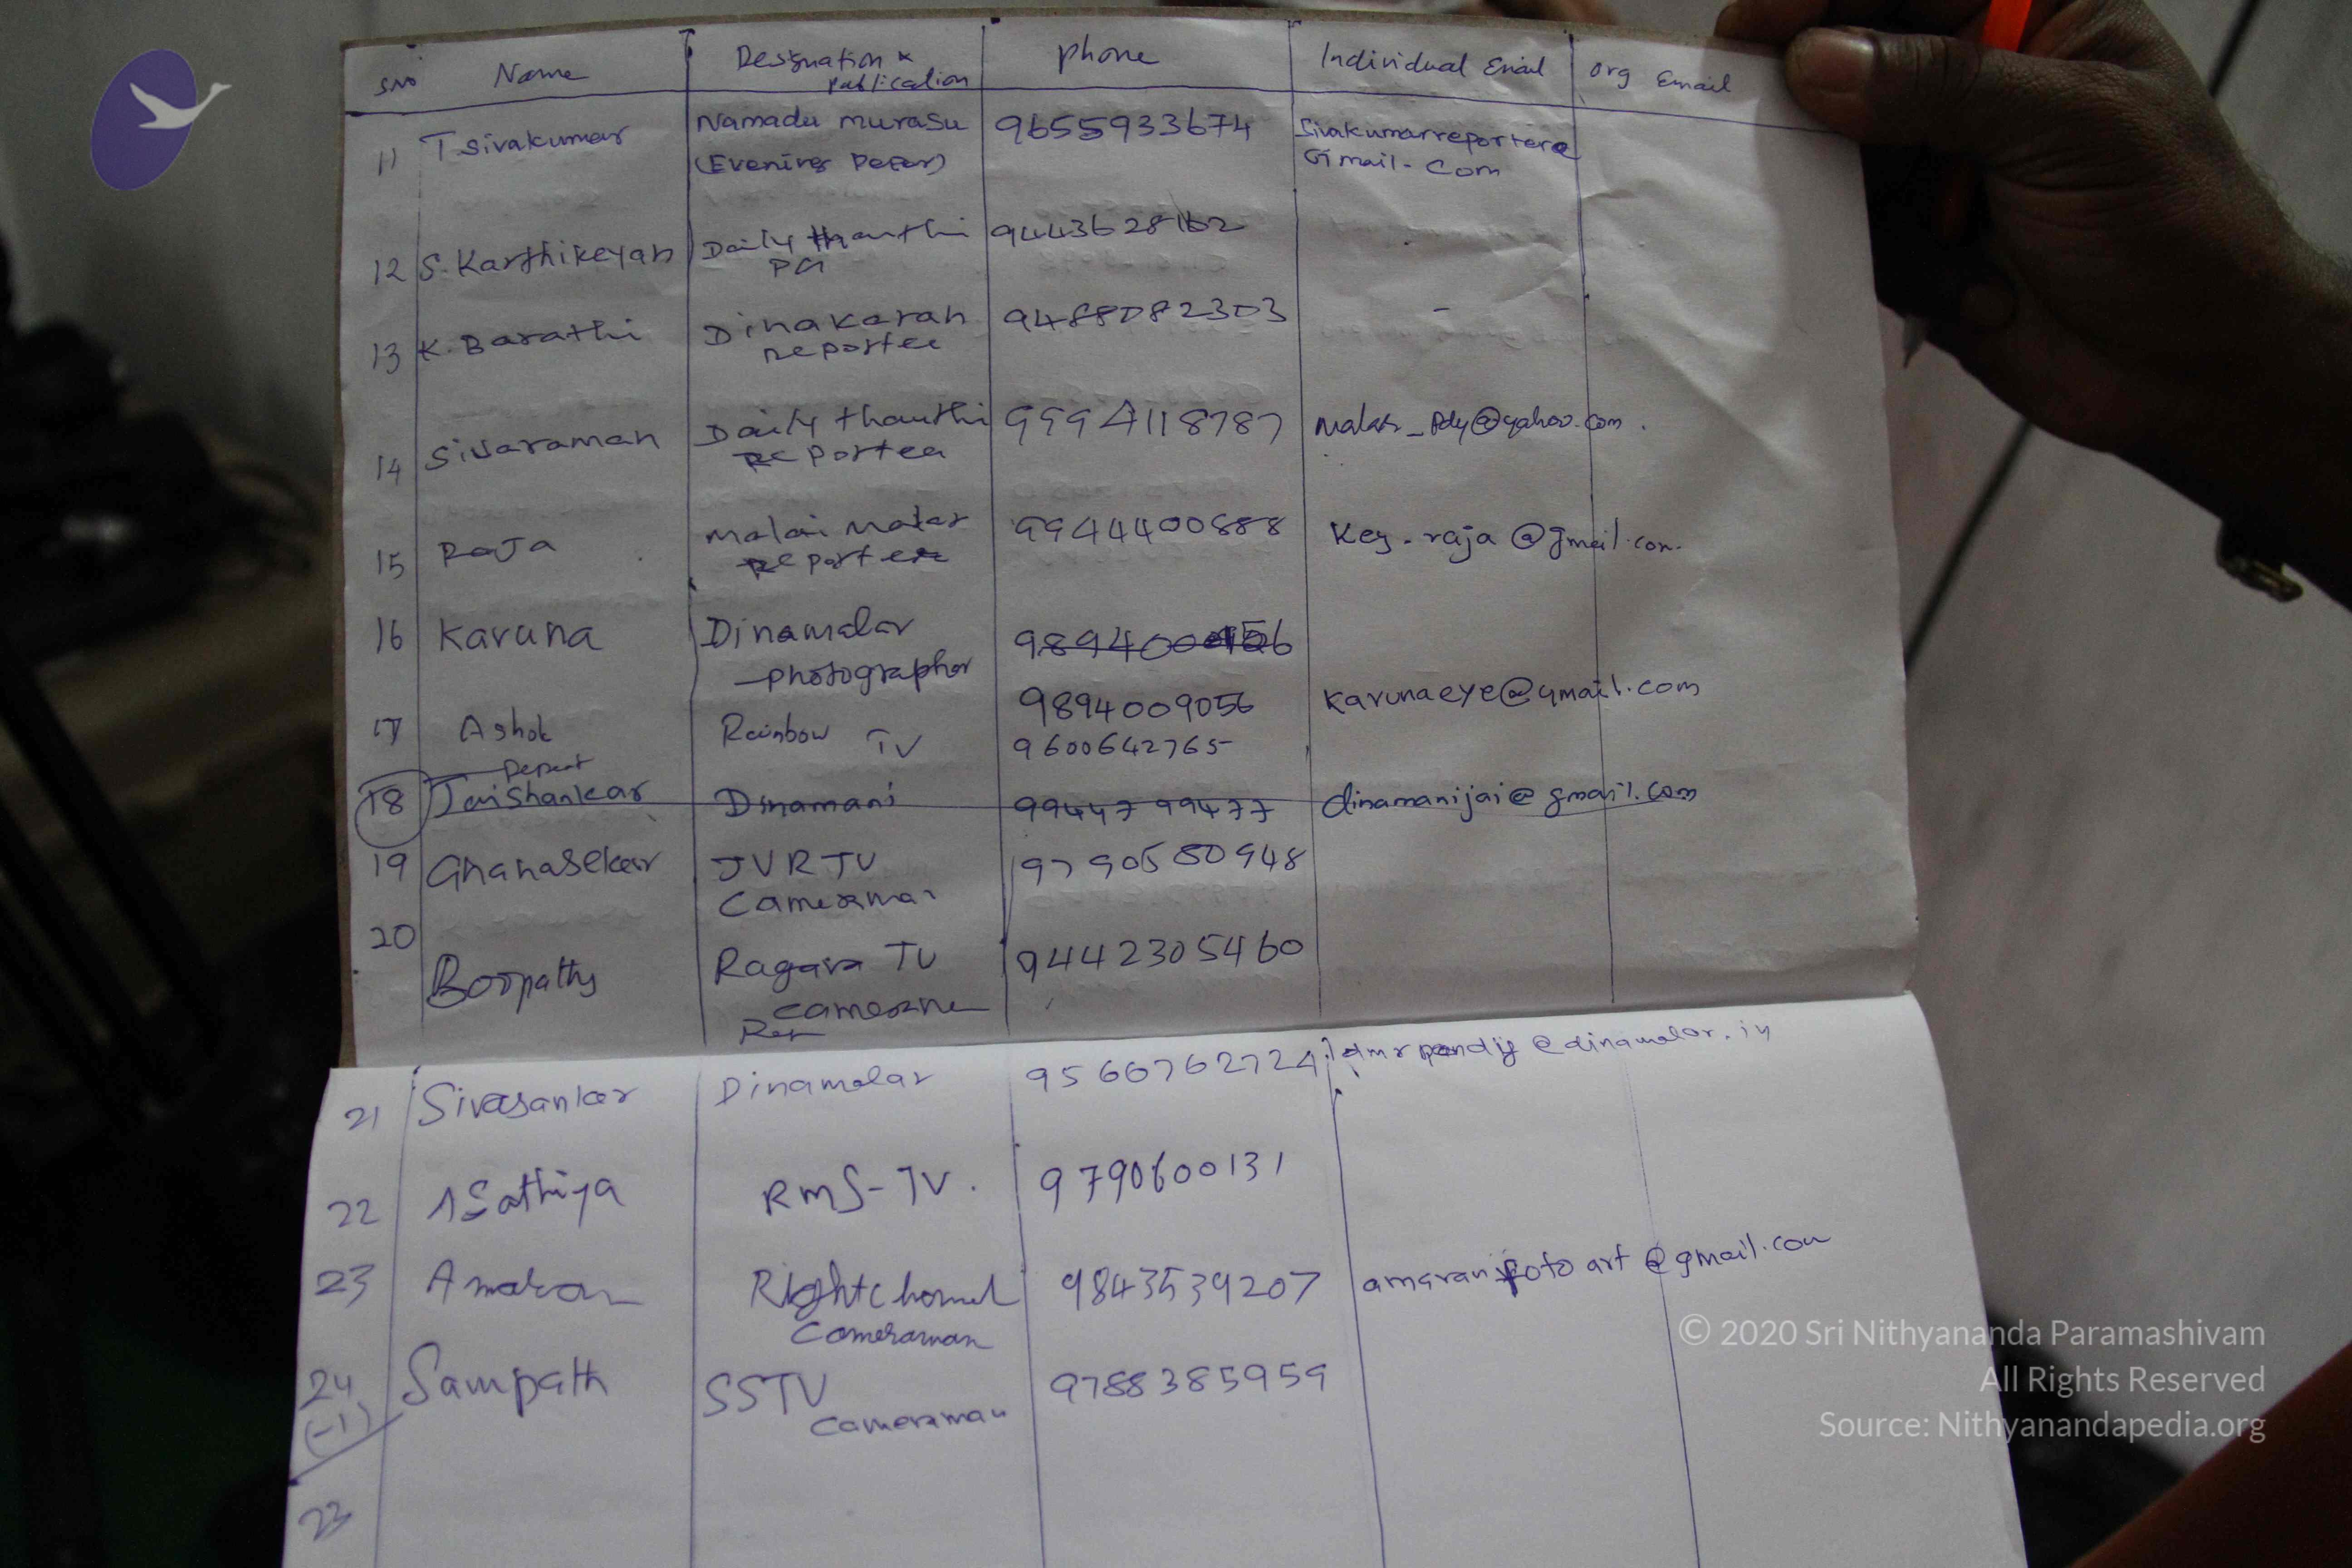 SNO Name Designation & publication phone Individual Email org Email
11 T sivakumar Namadu murasu 9655933674 Sivakumarreporter@
(Evening Peper) Gmail. Com
12 S. Karthikeyan Daily thanthi 9443628162
13 K. Barathi Dinakaran 9488082303 -
reporter
14 Sivaraman Daily thanthi 9994118787 @yahoo.com.
reporter
15 Raja malai malar 9944400888 Key.raja@gmail.com
reporter
16 Karuna Dinamalar
photographer
9894009056 karunaeye@gmail.com
17 Ashok Rainbow TV 9600642765
Repeat
18 Jaishankar Dinamani 99447 99477 dinamanijai@gmail.com
19 Gnanasekar JVR TV 9790580948
Cameraman
20
Boopathy TV 9442305460
21 Sivasankar Dinamalar 9566762724 @dinamalar.in
22 Sathiya RMS-TV. 9790600131
23 Amaran Right channel 9843539207 amaranfotoart@gmail.com
Cameraman
24 Sampath SSTV 9788385959
(-1) Cameraman
23
© 2020 Sri Nithyananda Paramashivam
All Rights Reserved
Source: Nithyanandapedia.org